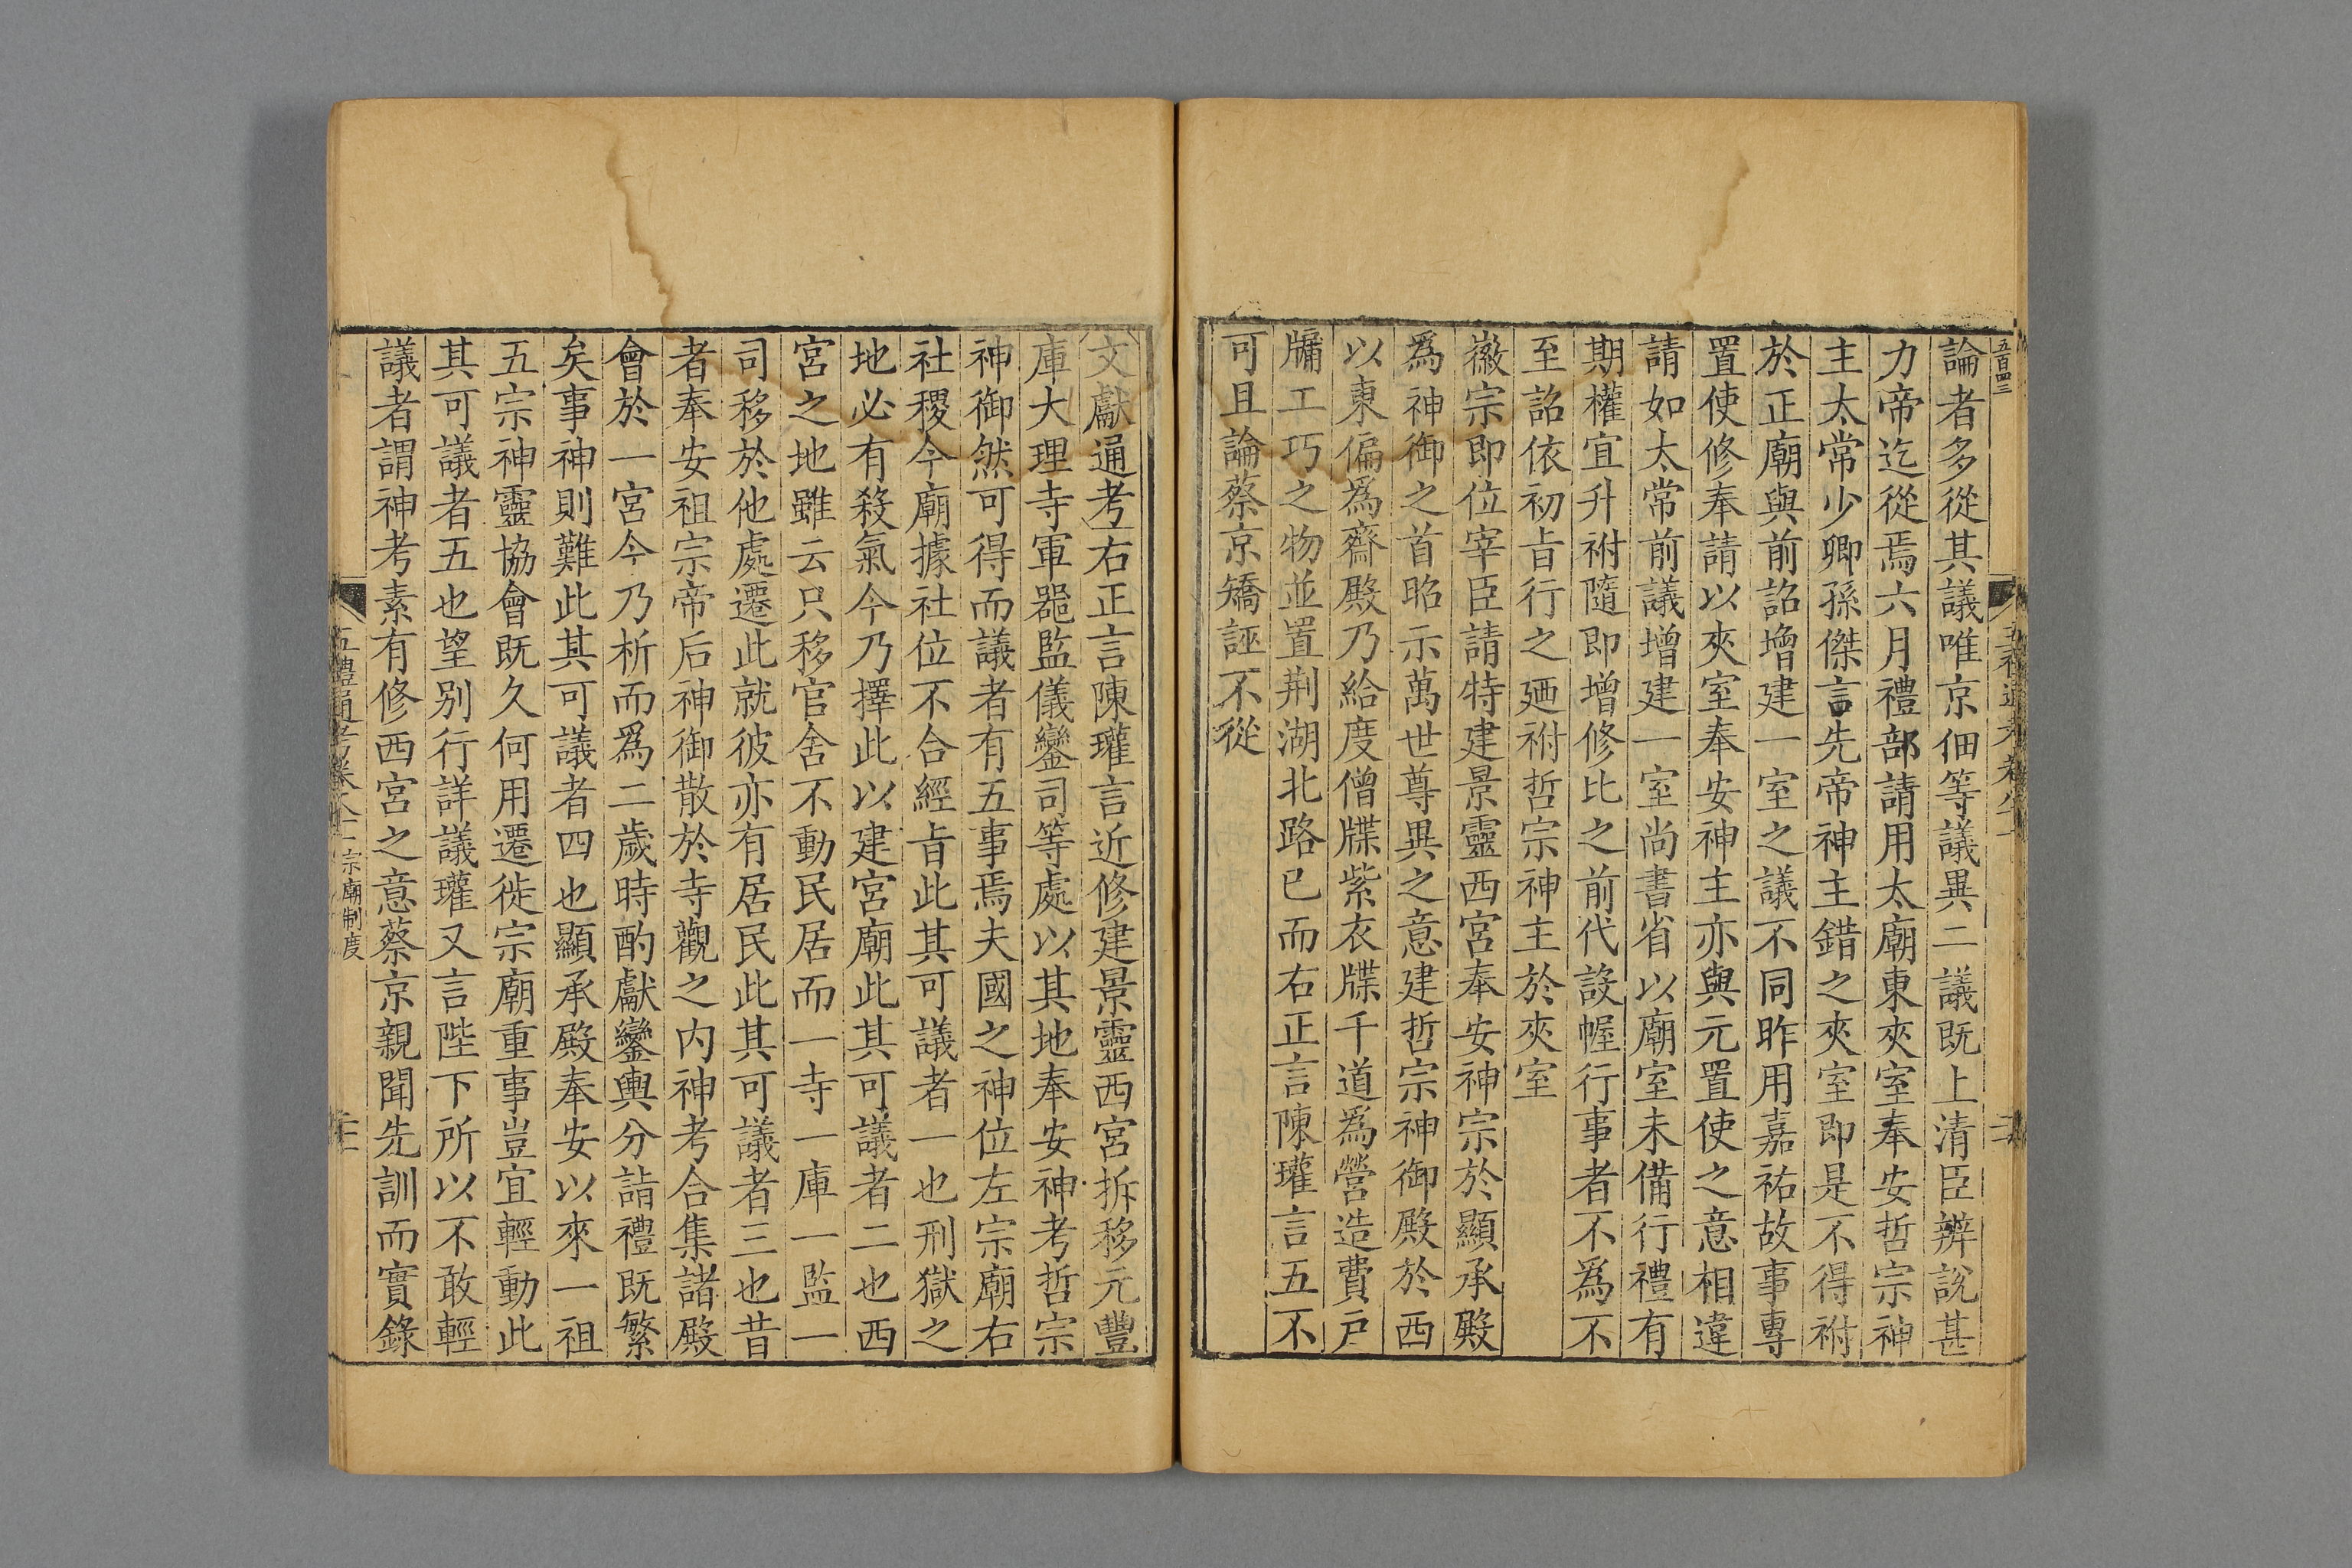 五百四三
論者多從其議唯京佃等議異二議既上清臣辨說甚
力帝迄從焉六月禮部請用太廟東夾室奉安哲宗神
主太常少卿孫傑言先帝神主錯之夾室即是不得祔
於正廟與前詔增建一室之議不同昨用嘉祐故事專
置使修奉請以夾室奉安神主亦與元置使之意相違
請如太常前議增建一室尚書省以廟室未備行禮有
期權宜升祔隨即增修比之前代設幄行事者不爲不
至詔依初旨行之廼祔哲宗神主於夾室
徽宗即位宰臣請特建景靈西宮奉安神宗於顯承殿
爲神御之首昭示萬世尊異之意建哲宗神御殿於西
以東偏爲齋殿乃給度僧牒紫衣牒千道爲營造費戸
牗工巧之物並置荆湖北路已而右正言陳瓘言五不
可且論蔡京矯誣不從
文獻通考右正言陳瓘言近修建景靈西宮拆移元豐
庫大理寺軍器監儀鸞司等處以其地奉安神考哲宗
神御然可得而議者有五事焉夫國之神位左宗廟右
社稷今廟據社位不合經旨此其可議者一也刑獄之
地必有殺氣今乃擇此以建宮廟此其可議者二也西
宮之地雖云只移官舍不動民居而一寺一庫一監一
司移於他處遷此就彼亦有居民此其可議者三也昔
者奉安祖宗帝后神御散於寺觀之内神考合集諸殿
會於一宮今乃析而爲二歲時酌獻鑾輿分詣禮既繁
矣事神則難此其可議者四也顯承殿奉安以來一祖
五宗神靈協會既久何用遷徙宗廟重事豈宜輕動此
其可議者五也望别行詳議瓘又言陛下所以不敢輕
議者謂神考素有修西宮之意蔡京親聞先訓而實錄
五禮通考卷八十一 宗廟制度